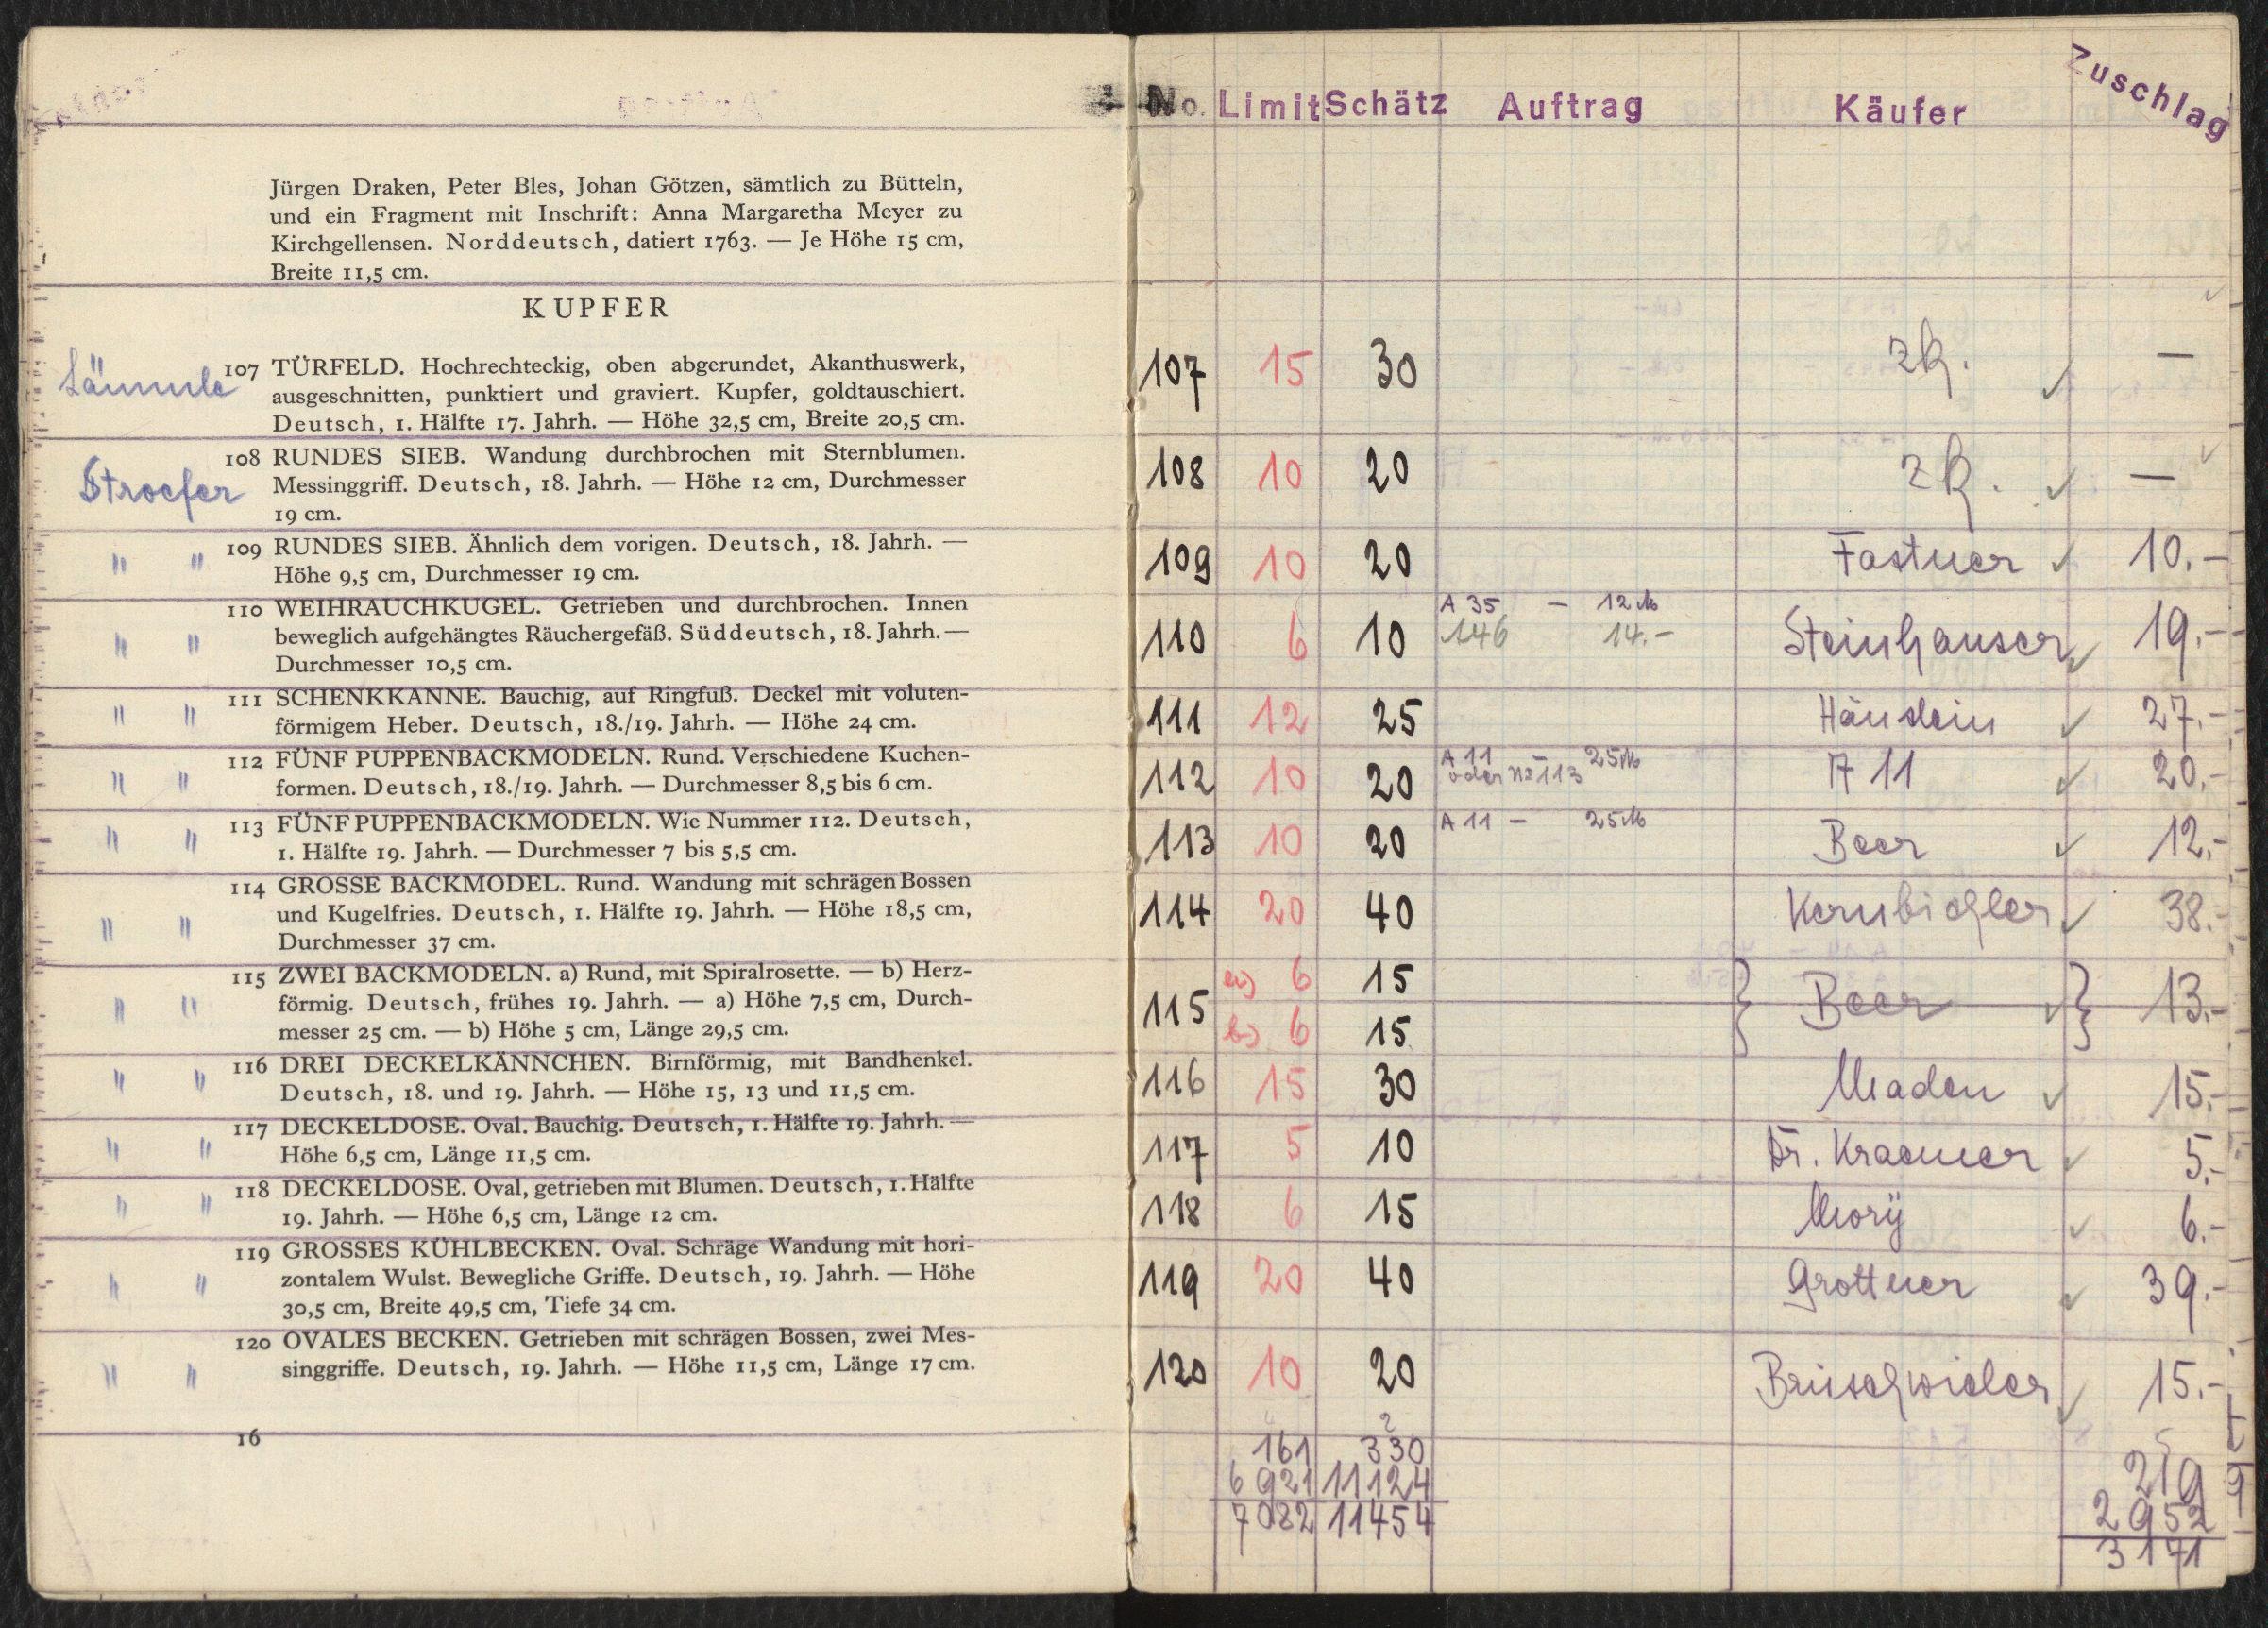 Jürgen Draken, Peter Bles, Johan Götzen, sämtlich zu Bütteln,
und ein Fragment mit Inschrift: Anna Margaretha Meyer zu
Kirchgellensen. Norddeutsch, datiert 1763. — Je Höhe 15 cm,
Breite 11,5 cm.
KUPFER
Lämmle
107 TÜRFELD. Hochrechteckig, oben abgerundet, Akanthuswerk,
ausgeschnitten, punktiert und graviert. Kupfer, goldtauschiert.
Deutsch, 1. Hälfte 17. Jahrh. — Höhe 32,5 cm, Breite 20,5 cm.
108 RUNDES SIEB. Wandung durchbrochen mit Sternblumen.
Stroefer Messinggriff. Deutsch, 18. Jahrh. — Höhe 12 cm, Durchmesser
19 cm.
" " 109 RUNDES SIEB. Ähnlich dem vorigen. Deutsch, 18. Jahrh. —
Höhe 9,5 cm, Durchmesser 19 cm.
110 WEIHRAUCHKUGEL. Getrieben und durchbrochen. Innen
" " beweglich aufgehängtes Räuchergefäß. Süddeutsch, 18. Jahrh. —
Durchmesser 10,5 cm.
" " 111 SCHENKKANNE. Bauchig, auf Ringfuß. Deckel mit voluten-
förmigem Heber. Deutsch, 18./19. Jahrh. — Höhe 24 cm.
" " 112 FÜNF PUPPENBACKMODELN. Rund. Verschiedene Kuchen-
formen. Deutsch, 18./19. Jahrh. — Durchmesser 8,5 bis 6 cm.
" " 113 FÜNF PUPPENBACKMODELN. Wie Nummer 112. Deutsch,
1. Hälfte 19. Jahrh. — Durchmesser 7 bis 5,5 cm.
114 GROSSE BACKMODEL. Rund. Wandung mit schrägen Bossen
" " und Kugelfries. Deutsch, 1. Hälfte 19. Jahrh. — Höhe 18,5 cm,
Durchmesser 37 cm.
115 ZWEI BACKMODELN. a) Rund, mit Spiralrosette. — b) Herz-
" " förmig. Deutsch, frühes 19. Jahrh. — a) Höhe 7,5 cm, Durch-
messer 25 cm. — b) Höhe 5 cm, Länge 29,5 cm.
" " 116 DREI DECKELKÄNNCHEN. Birnförmig, mit Bandhenkel.
Deutsch, 18. und 19. Jahrh. — Höhe 15, 13 und 11,5 cm.
" " 117 DECKELDOSE. Oval. Bauchig. Deutsch, 1. Hälfte 19. Jahrh. —
Höhe 6,5 cm, Länge 11,5 cm.
" " 118 DECKELDOSE. Oval, getrieben mit Blumen. Deutsch, 1. Hälfte
19. Jahrh. — Höhe 6,5 cm, Länge 12 cm.
119 GROSSES KÜHLBECKEN. Oval. Schräge Wandung mit hori-
" " zontalem Wulst. Bewegliche Griffe. Deutsch, 19. Jahrh. — Höhe
30,5 cm, Breite 49,5 cm, Tiefe 34 cm.
120 OVALES BECKEN. Getrieben mit schrägen Bossen, zwei Mes-
" " singgriffe. Deutsch, 19. Jahrh. — Höhe 11,5 cm, Länge 17 cm.
16
No. Limit Schätz Auftrag Käufer Zuschlag
107 15 30 zk. —
108 10 20 zk. —
109 10 20 Fastner 10.-
A 35 — 12 M
110 6 10 146 14.- Steinhauser 19.-
111 12 25 Hänslein 27.-
A 11 — 25 M
112 10 20 oder No 113 A 11 20.-
113 10 20 A 11 — 25 M Beer 12.-
114 20 40 Kernbichler 38.-
a) 6 15
115 Beer 13.-
b) 6 15
116 15 30 Maden 15.-
117 5 10 Dr. Kraemer 5.-
118 6 15 Morÿ 6.-
119 20 40 Grottner 39.-
120 10 20 Brüschwieler 15.-
161 330 219
6921 11124 2952
7082 11454 3171